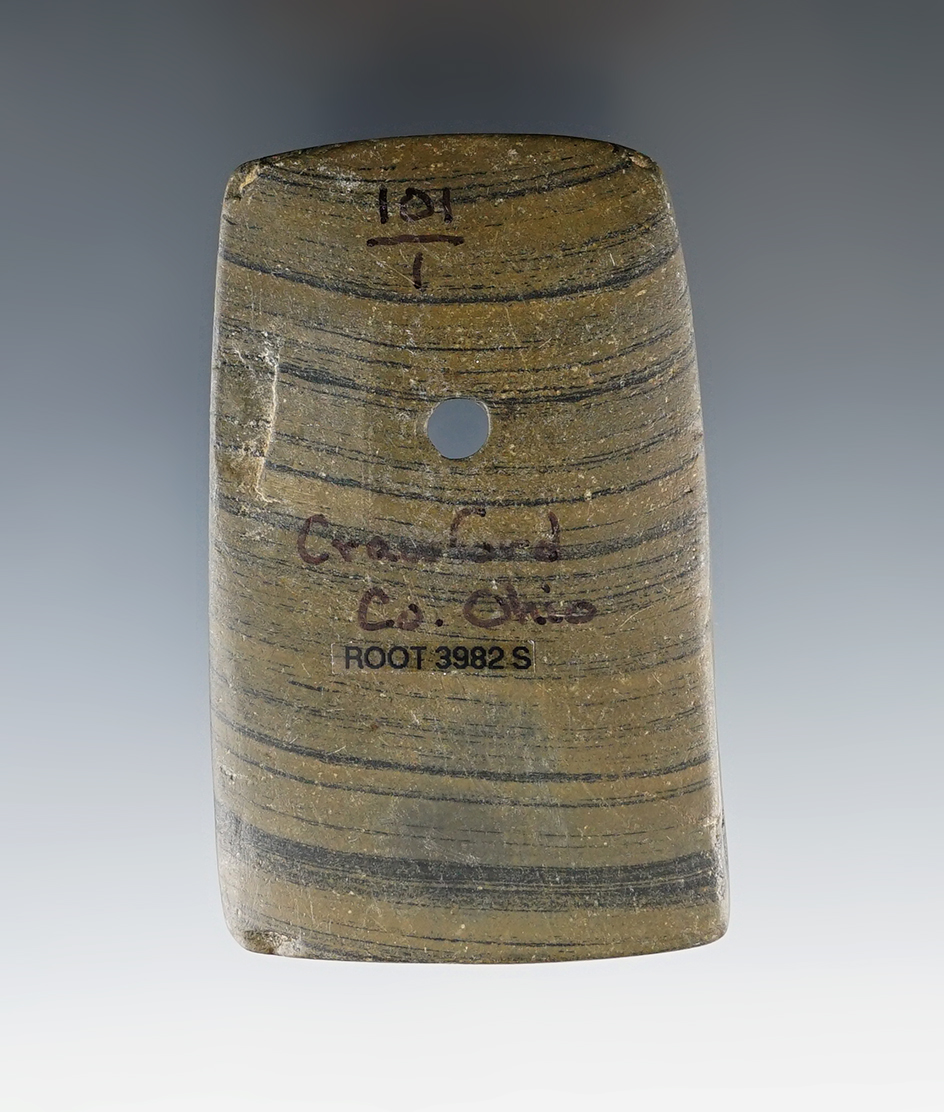 101
1
Crawford
Co. Ohio
ROOT 3982 S